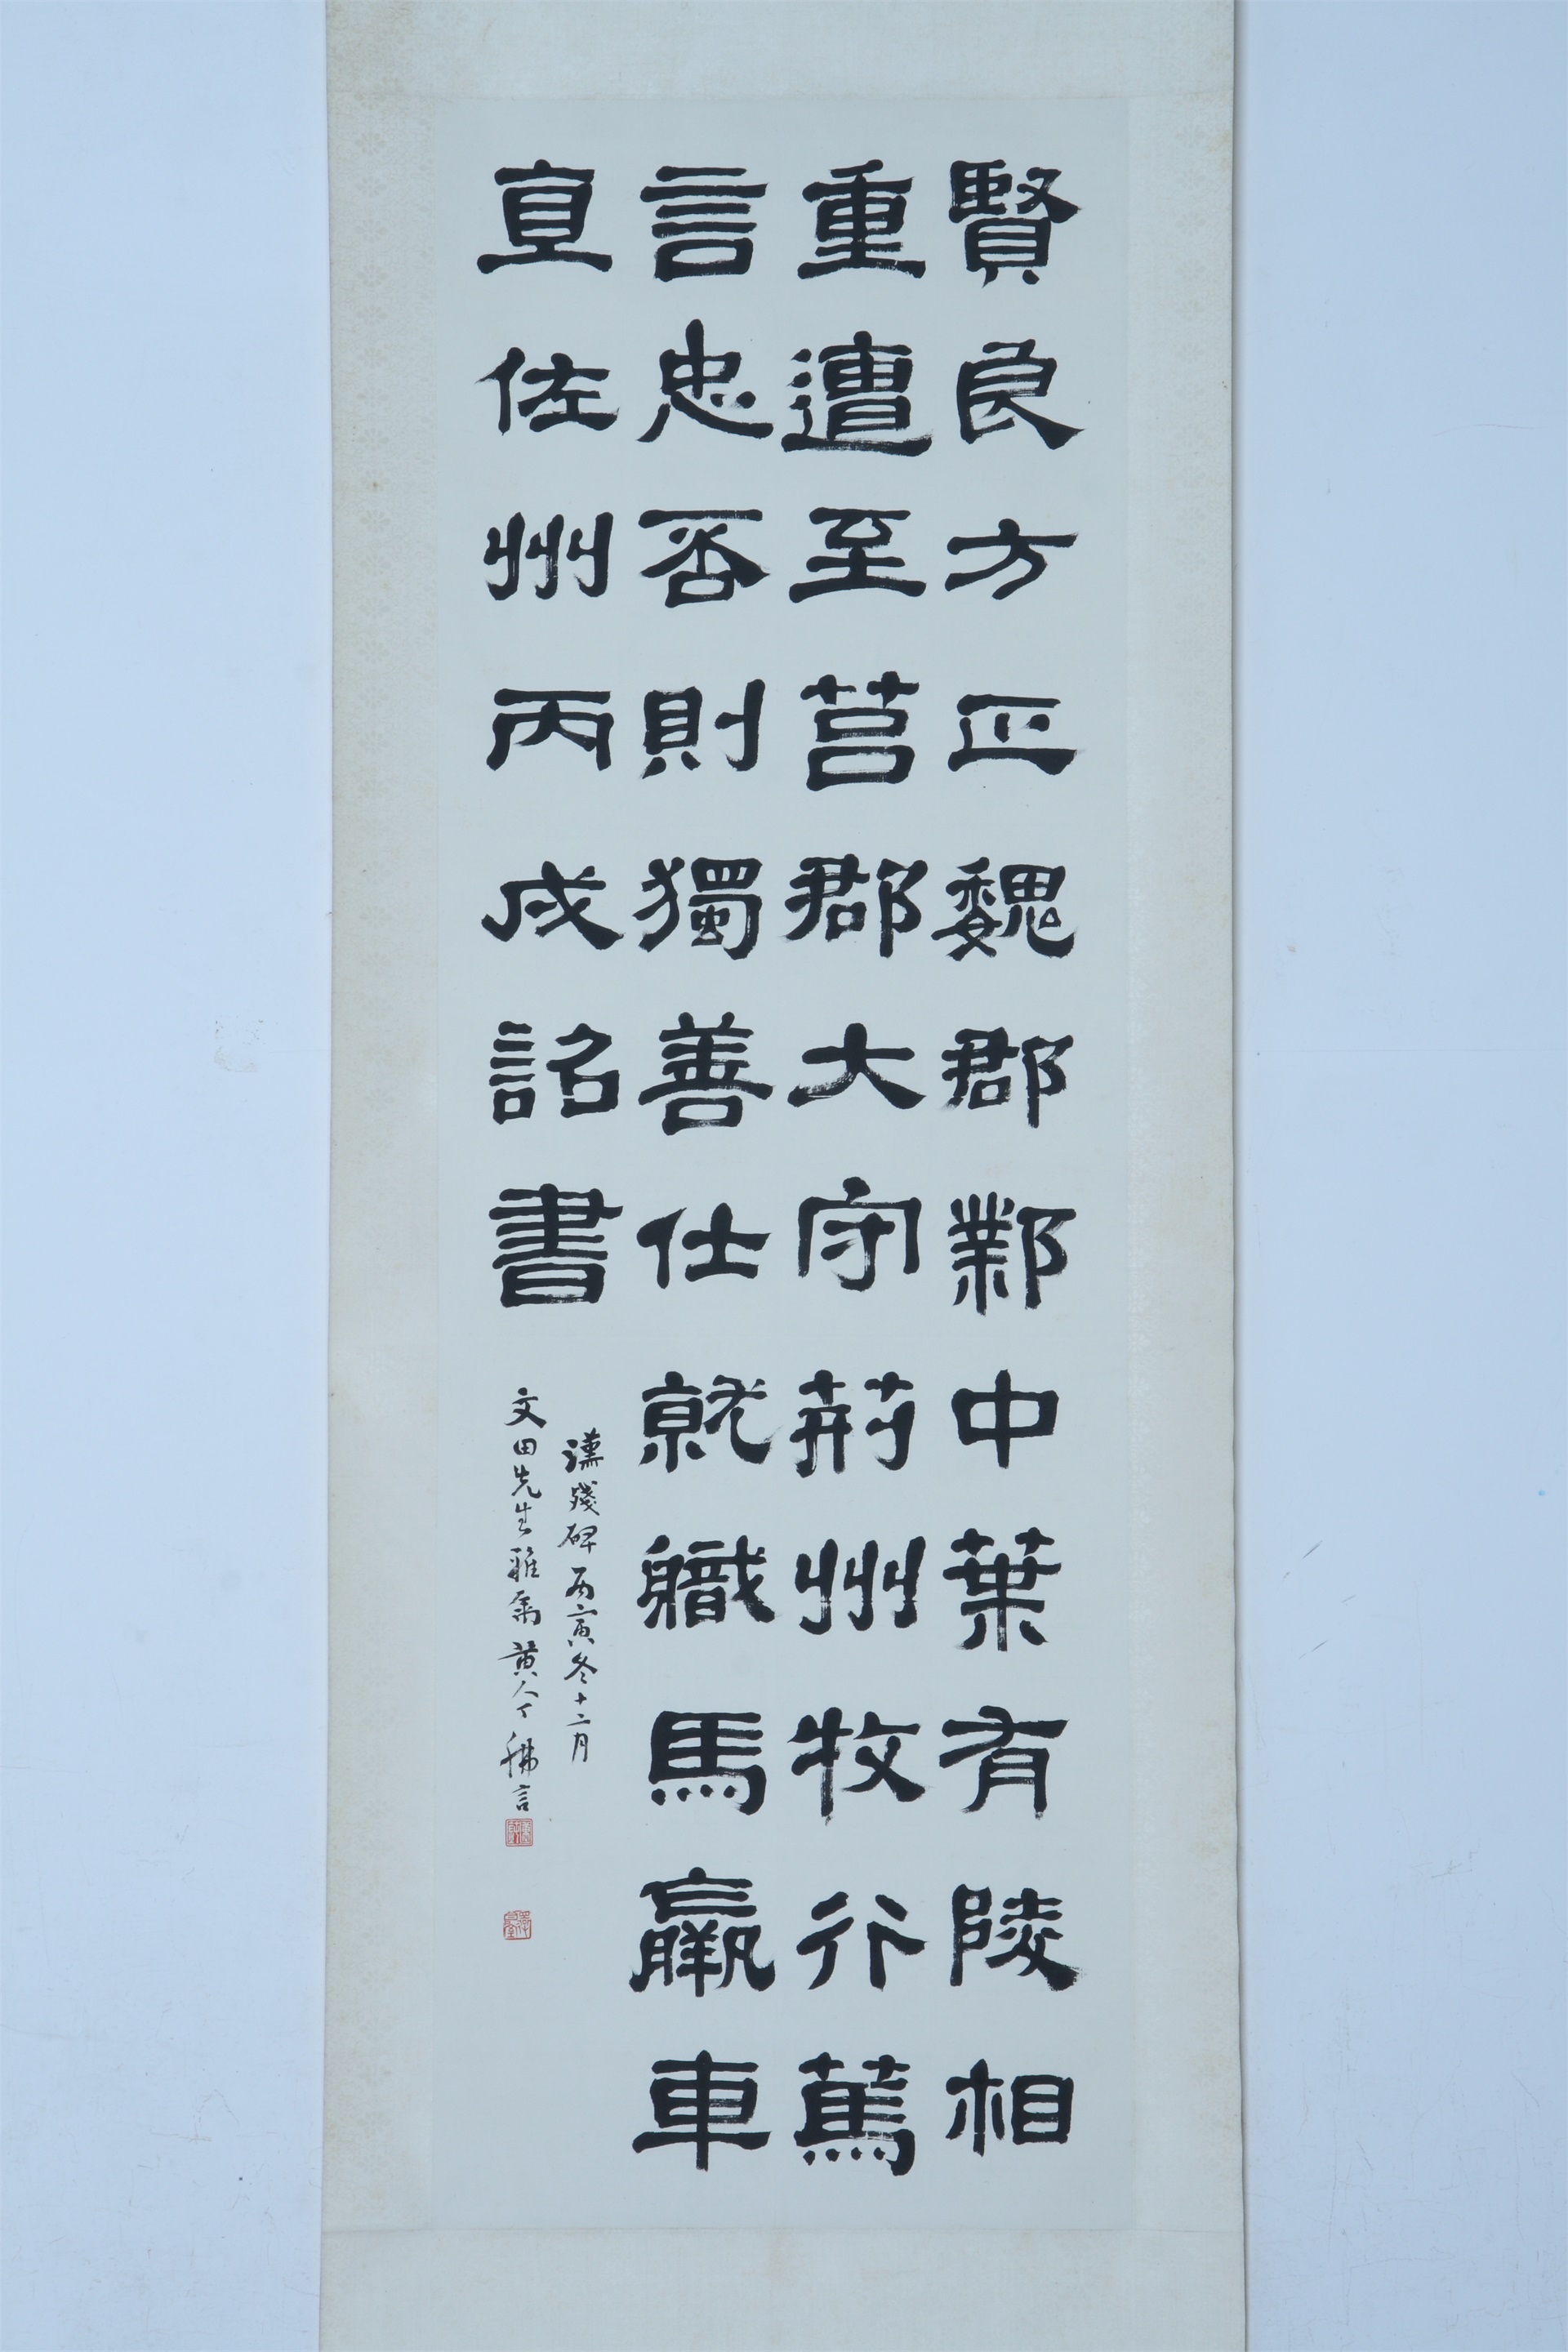 賢良方正魏郡鄴中葉有陵相
重遭至莒郡大守荊州牧行篤
言忠否則獨善仕就職馬羸車
宣佐州丙戌詔書
漢殘碑丙寅冬十二月
文田先生雅屬黃人丁佛言